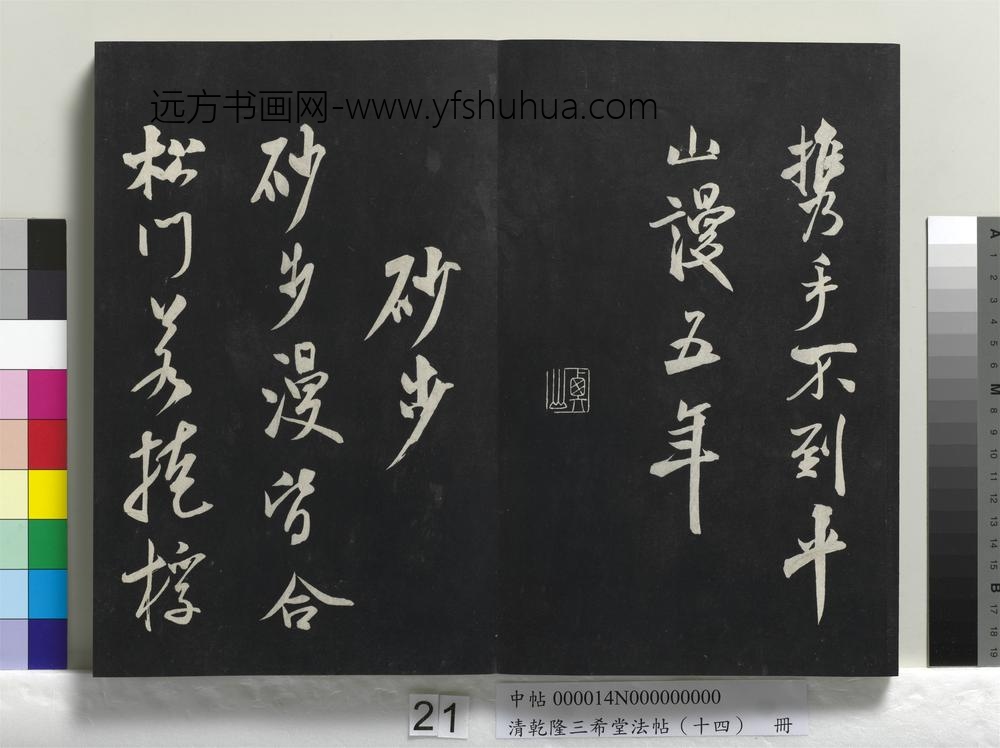 远方书画网-www.yfshuhua.com
携手不到平
山謾五年
砂步
砂步漫皆合
松門若掩桴
21
中帖 000014N000000000
清乾隆三希堂法帖（十四）　冊
A 1 2 3 4 5 6 M 8 9 10 11 12 13 14 15 B 17 18 19